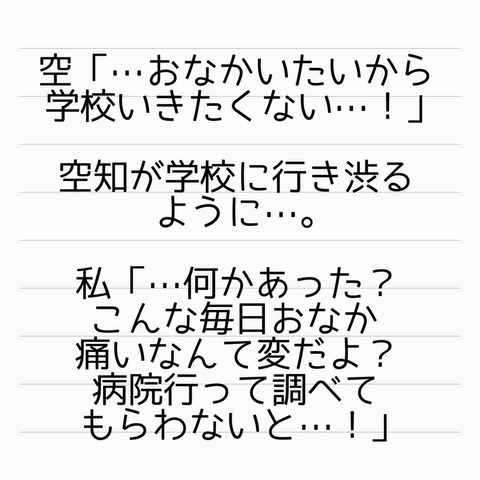 空「…おなかいたいから
学校いきたくない…！」
空知が学校に行き渋る
ように…。
私「…何かあった？
こんな毎日おなか
痛いなんて変だよ？
病院行って調べて
もらわないと…！」